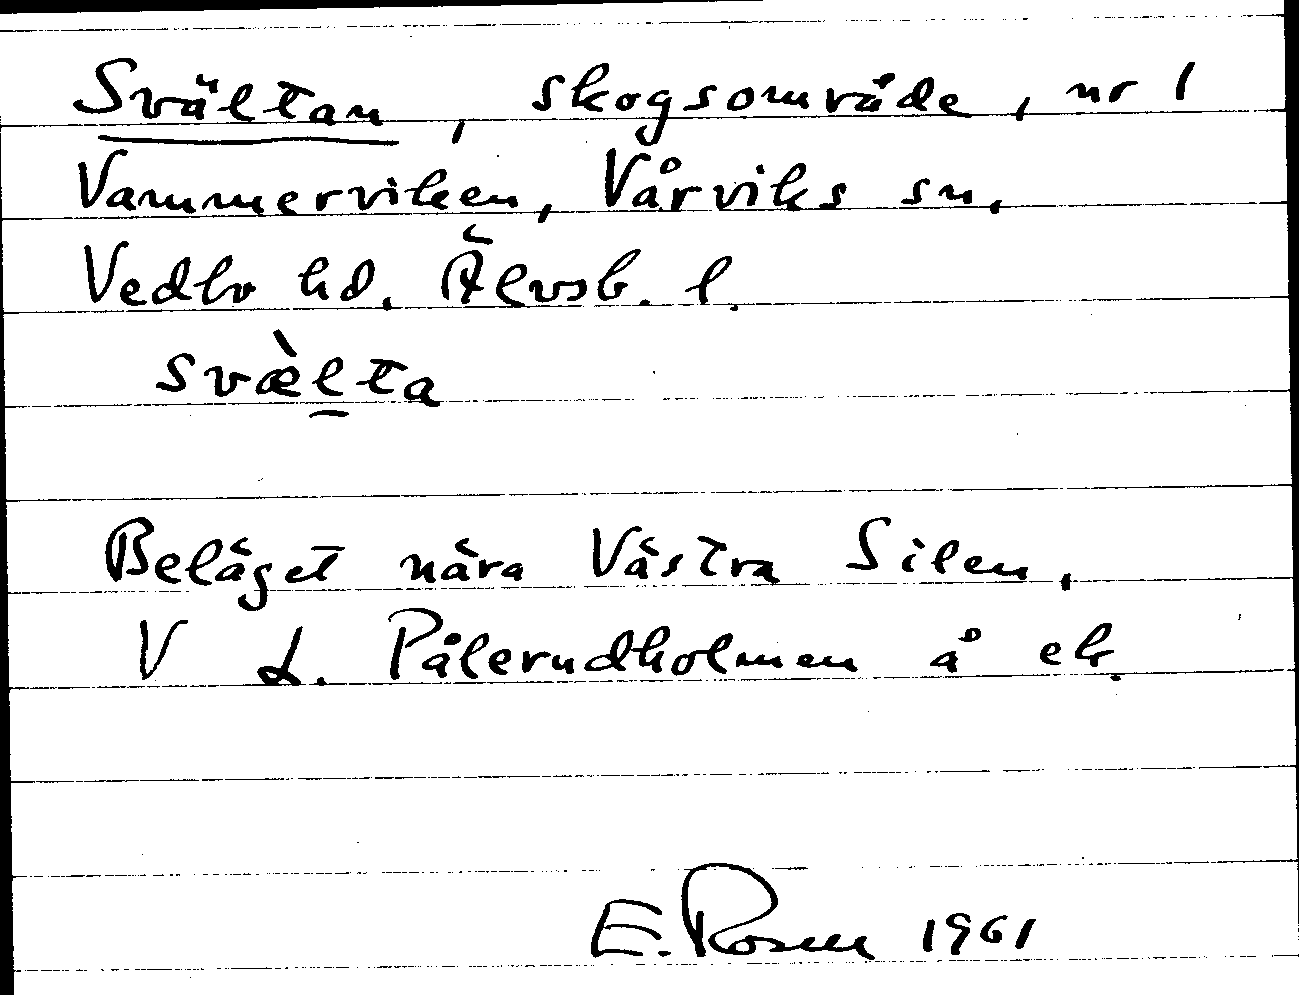 Svältan, skogsområde, nr 1
Vammerviken, Vårviks sn,
Vedbo hd. Älvsb. l.
svæ̀lta
Beläget nära Västra Silen,
V L. Pålerudholmen å ek.
E. Rosen 1961